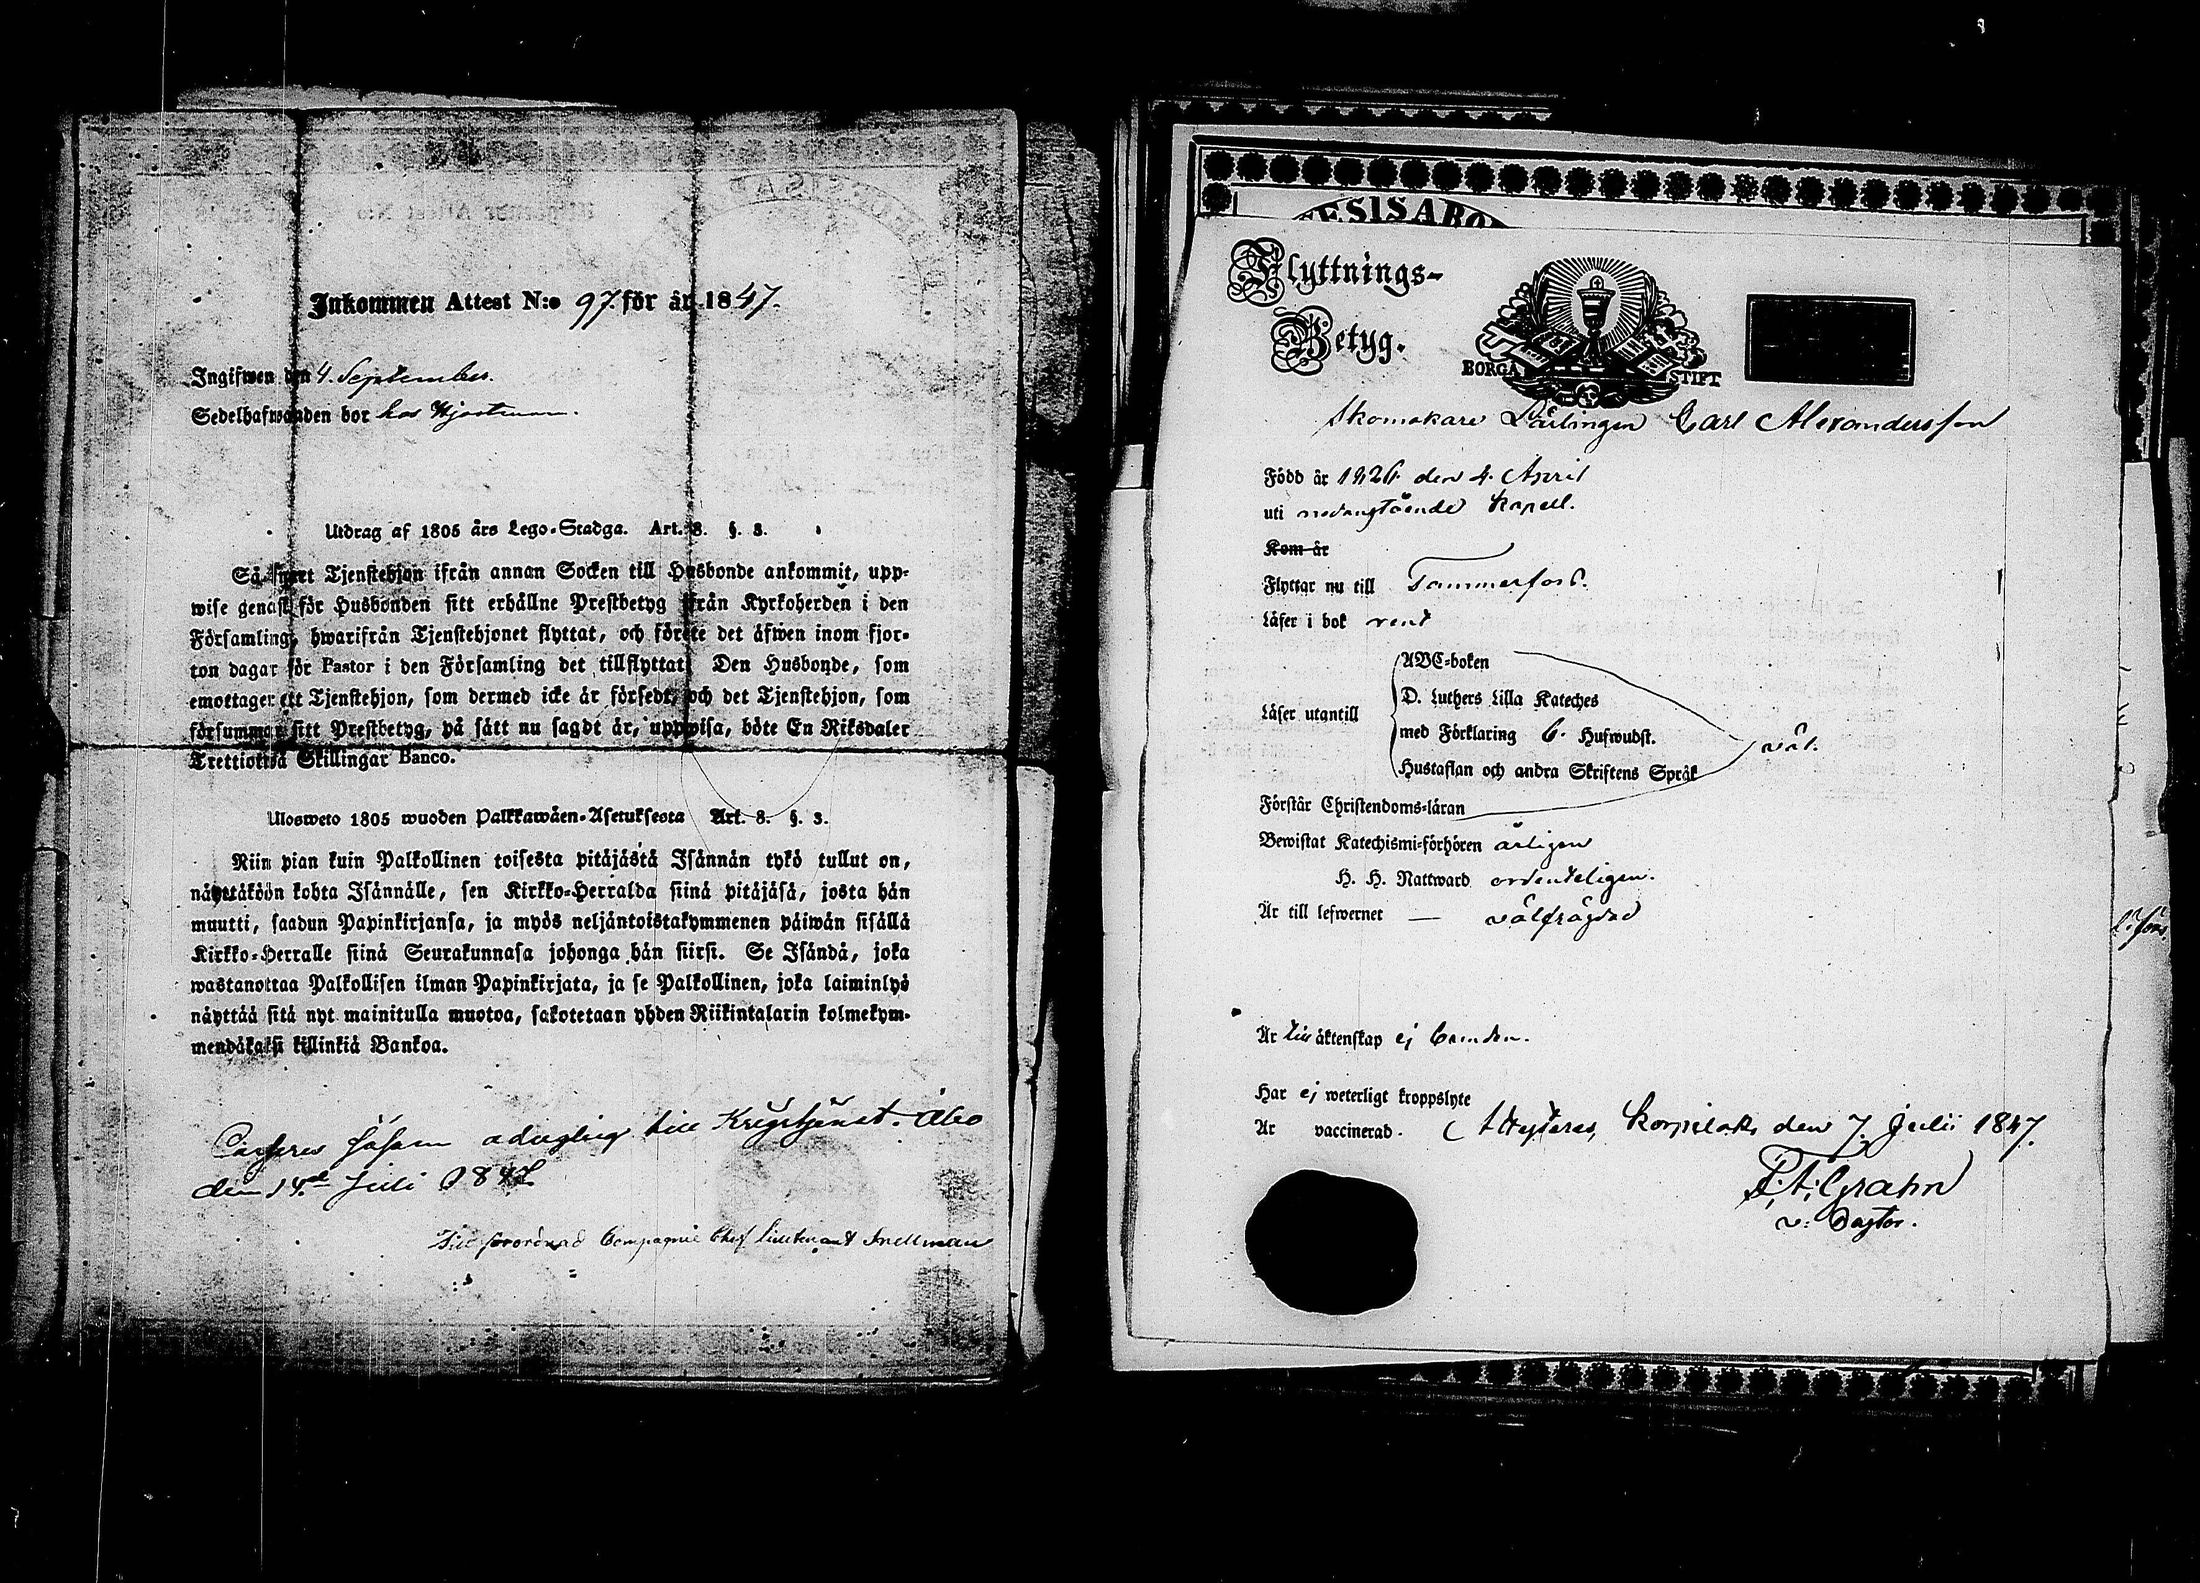 Inkommen Attest N:o 97. för år 1847.
Ingifwen den 4. September.
Sedelhafwanden bor hos
Utdrag af 1805 års Lego-Stadga. Art. 8. §. 3.
Så snart Tjenstehjon ifrån annan Socken till Husbonde ankommit, upp-
wise genast för Husbonden sitt erhållne Prestbetyg ifrån Kyrkoherden i den
Församling, hwarifrån Tjenstehjonet flyttat, och förete det äfwen inom fjor-
ton dagar för Pastor i den Församling det tillflyttat. Den Husbonde, som
emottager ett Tjenstehjon, som dermed icke är försedt, och det Tjenstehjon, som
försummar sitt Prestbetyg, på sätt nu sagdt är, uppwisa, böte En Riksdaler
Trettiotwå Skillingar Banco.
Ulosweto 1805 wuoden Palkkawäen-Asetuksesta Art. 8. §. 3.
Niin pian kuin Palkollinen toisesta pitäjästä Isännän tykö tullut on,
näyttäköön kohta Isännälle, sen Kirkko-Herralda siinä pitäjäsä, josta hän
muutti, saadun Papinkirjansa, ja myös neljäntoistakymmenen päiwän sisällä
Kirkko-Herralle siinä Seurakunnasa johonga hän siirsi. Se Isändä, joka
wastanottaa Palkollisen ilman Papinkirjata, ja se Palkollinen, joka laiminlyö
näyttää sitä nyt mainitulla muotoa, sakotetaan yhden Riikintalarin kolmekym-
mendäkaksi killinkiä Bankoa.
oduglig till Krigstjenst. Åbo
den 14.de Juli 1847.
Tillförordnad Compagnie Chef Lieutenant Snellman
ESISABO
Flyttnings-
Betyg.
BORGÅ STIFT
Skomakare Lärlingen Carl Alexandersson
Född år 1826 den 4. April
uti nedangstående Kapell.
Kom år
Flyttar nu till Tammerfors.
Läser i bok rent
ABC-boken
D. Luthers Lilla Kateches
Läser utantill
med Förklaring 6. Hufwudst. väl.
Hustaflan och andra Skriftens Språk
Förstår Christendoms-läran
Bewistat Katechismi-förhören årligen
H. H. Nattward ordenteligen.
Är till lefwernet — välfrägdad
Är till äktenskap ej bunden.
Har ej weterligt kroppslyte
Är vaccinerad. Korpilaks den 7. Julii 1847.
Grahn
v: Pastor.